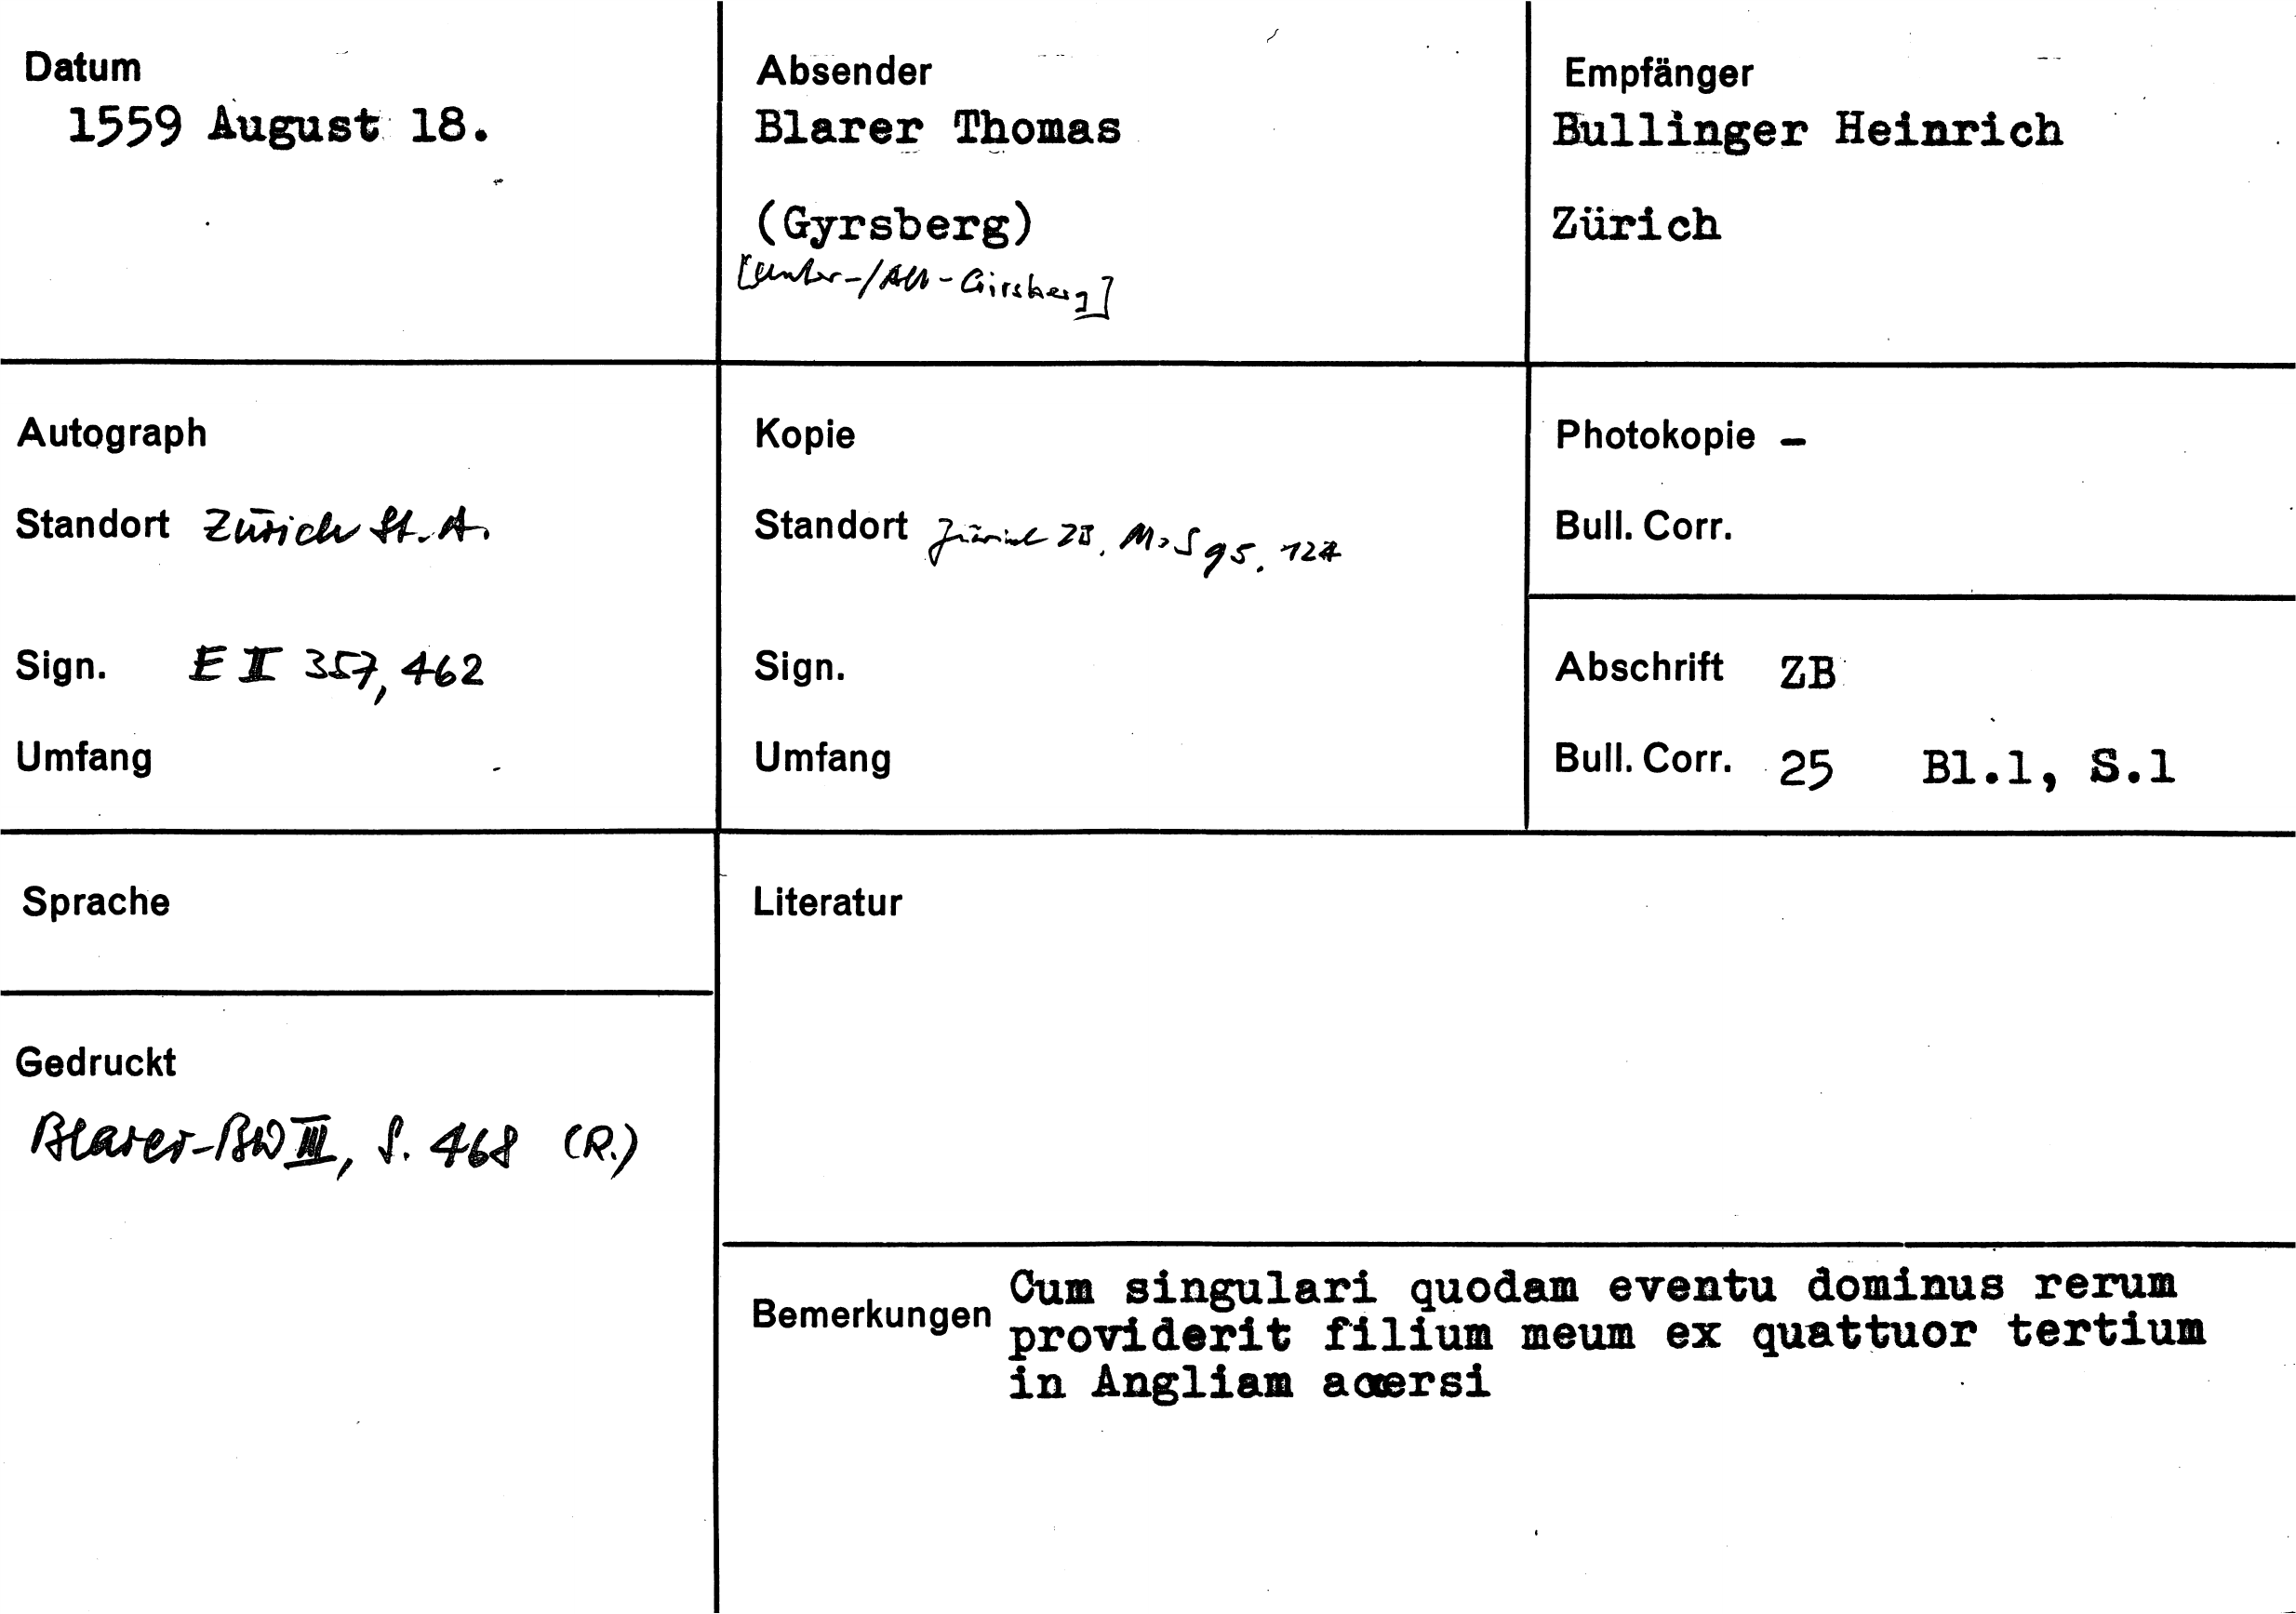 Datum
1559 August 18.
Absender
Blarer Thomas
(Gyrsberg)
[Unter-/Alt-Girsberg]
Empfänger
Bullinger Heinrich
Zürich
Autograph
Standort Zürich St. A.
Sign. E II 357, 462
Umfang
Kopie
Standort Zürich ZB, Ms S 95, 124
Sign.
Umfang
Photokopie –
Bull. Corr.
Abschrift ZB
Bull. Corr. 25 Bl.1, S.1
Sprache
Literatur
Gedruckt
Blarer-BW III, S. 468 (R.)
Bemerkungen
Cum singulari quodam eventu dominus rerum
providerit filium meum ex quattuor tertium
in Angliam accersi